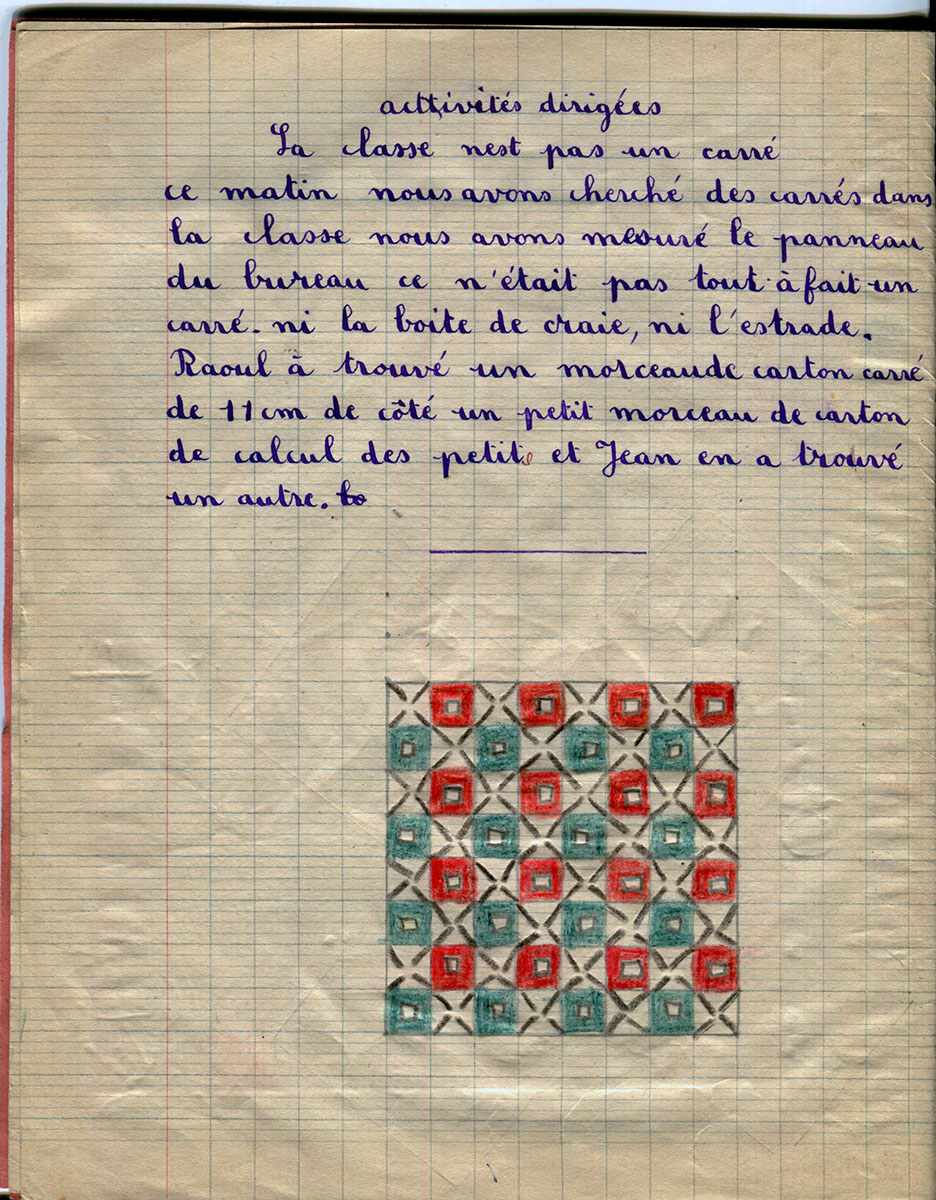 acttivités dirigées
La classe nest pas un carré
ce matin nous avons cherché des carrés dans
la classe nous avons mesuré le panneau
du bureau ce n'était pas tout à fait un
carré. ni la boite de craie, ni l'estrade.
Raoul à trouvé un morceaude carton carré
de 11 cm de côté un petit morceau de carton
de calcul des petits et Jean en a trouvé
un autre.